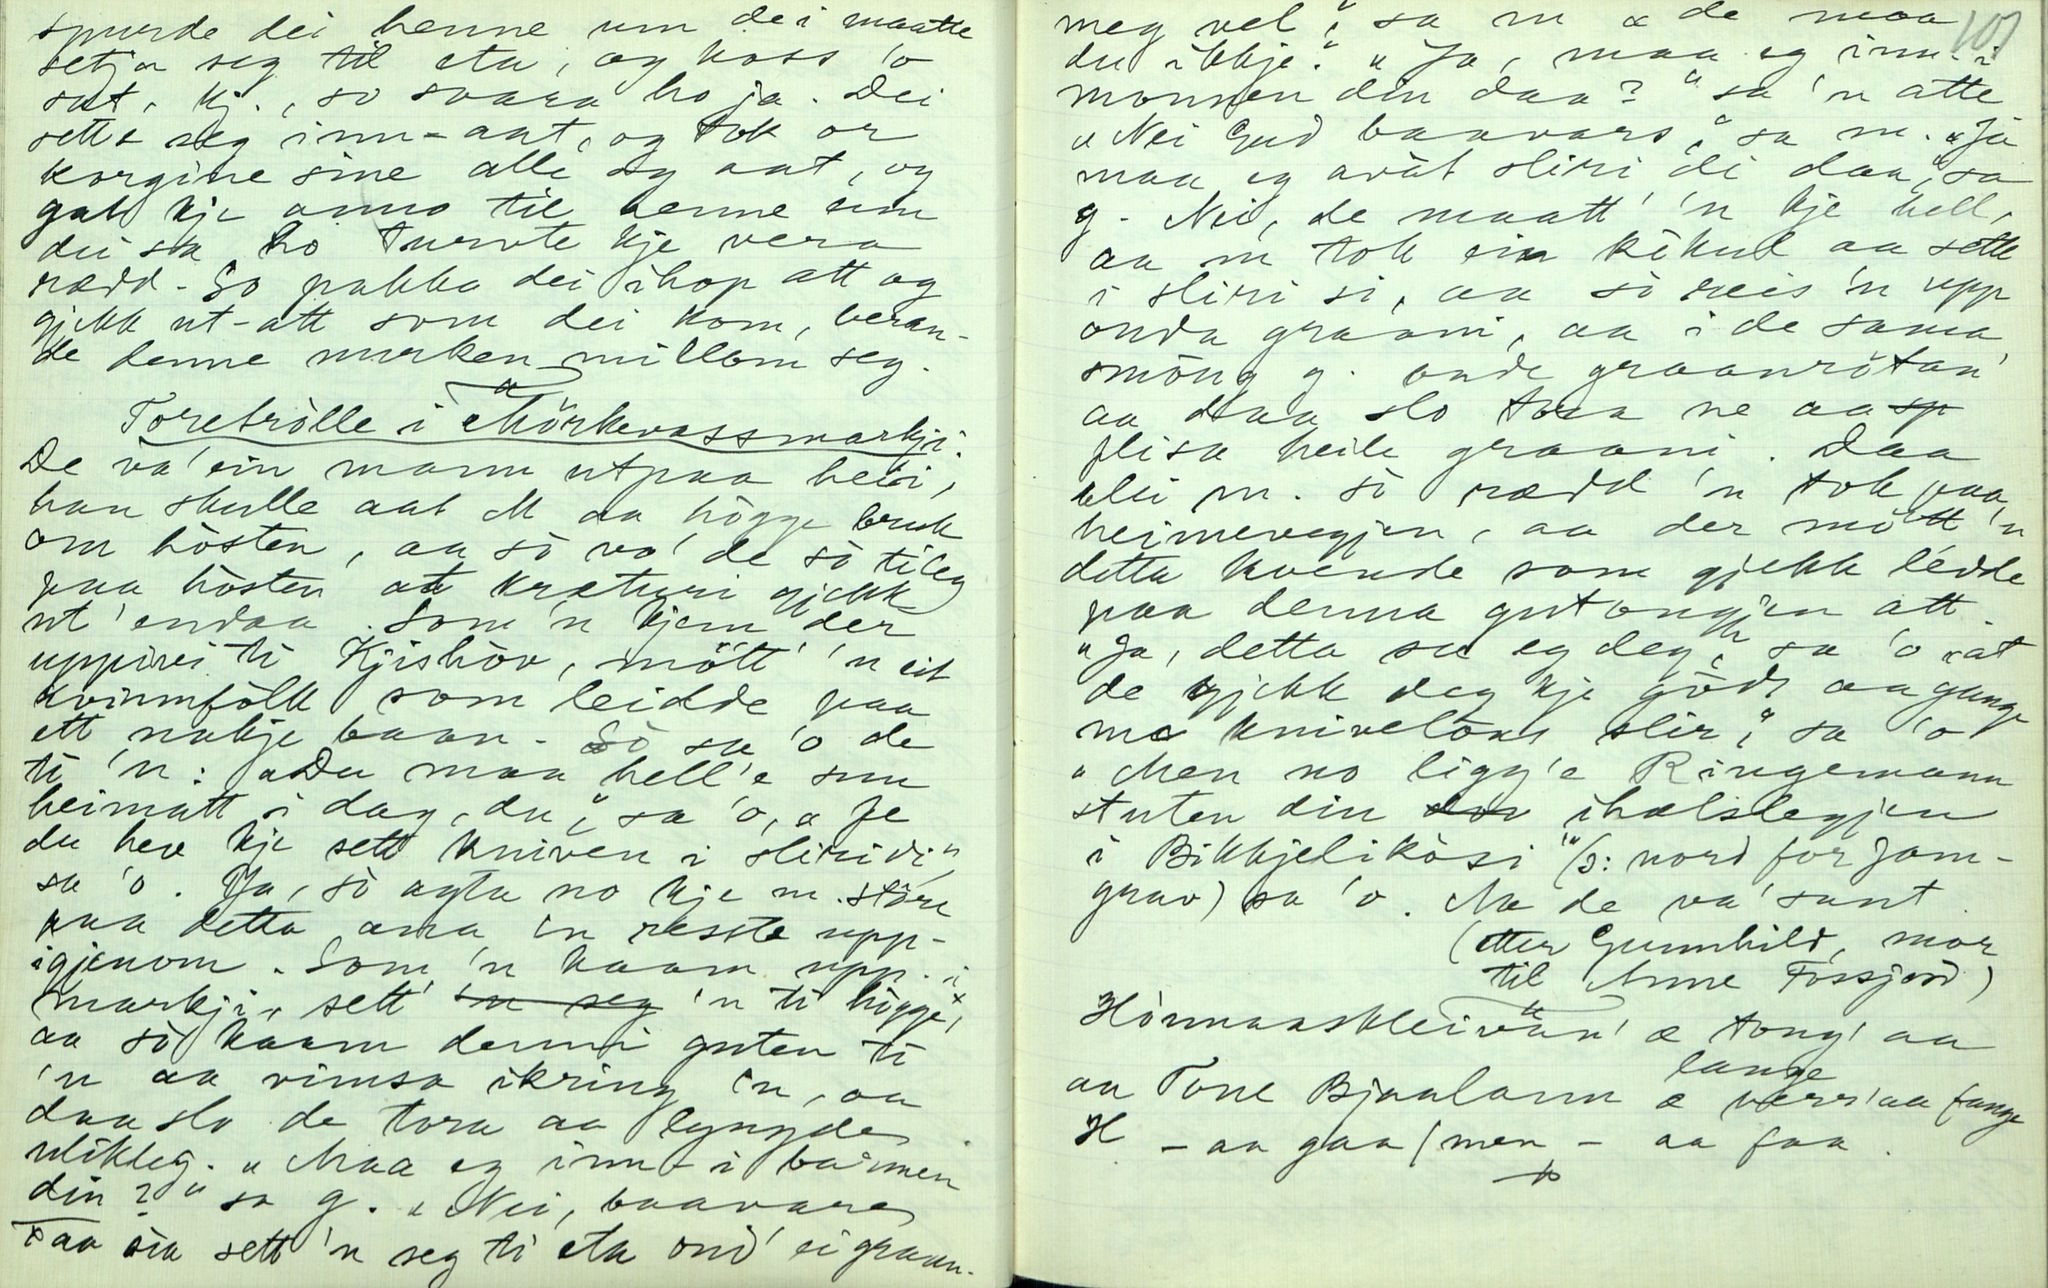 spurde dei henne um dei maatte
setja seg til eta, og koss 'o
sat, kj., so svara ho ja. Dei
sette seg inn-aat, og tok or
korgine sine alle og aat, og
gav kje anno til henne enn
dei sa ho turvte kje vera
rædd. So pakka dei ihop att og
gjekk ut-att som dei kom, beran-
de denne murken millom seg.
Toretrölle i Mörkevassmarkji.
De va' ein mann utpaa heii,
han skulle aat M aa högge bruk
om hösten, aa sò va' de sò tileg
paa hösten at kræturi gjekk
ut' endaa. Som 'n kjem der
uppivi ti Kjishöv, mött' 'n eit
kvinnfolk som leidde paa
ett nakje baan. Sò sa 'o de
ti 'n: „Du maa hell'e snu
heimatt i dag, du," sa 'o, „Fe
du hev kje sett kniven i sliri di,"
sa 'o. Ja, sò agta no kje m. störe
paa detta, ana 'n reiste upp-
igjenom. Som 'n kaam upp i
markji, sett' 'n seg 'n ti högge,x
aa sò kaam denni guten ti
'n aa vimsa ikring 'n, aa
daa slo de tora aa lyngde
ulikleg. „Maa eg inn-i barmen
din?" sa g. „Nei, baavare
x aa sia sett 'n seg ti eta ond' ei graan.
107
meg vel," sa m „de maa
du ikkje." „Ja, maa eg inn-i
monnen din daa?" sa 'n atte
„Nei Gud baavars," sa m. „Ja
maa eg avåt sliri di daa," sa
g. Nei, de maatt' 'n kje hell,
aa m tok ein kikul aa sette
i sliri si, aa sò reis 'n upp
onda graani, aa i de sama
smöug g. onde graanrötan'
aa daa slo tora ne aa sp
flisa heile graani. Daa
blei m. sò rædd 'n tok paa
heimevegjen, aa der mött 'n
detta kvende som gjekk leidde
paa denna gutongjen att.
„Ja, detta sa eg deg," sa 'o „at
de gjekk deg kje godt aa gange
me knivelöus slir," sa 'o
„Men no ligg'e Ringemann
stuten din der ihelslegjen
i Bikkjelikåsi" (ɔ: nord for Jam-
grav) sa 'o. Aa de va' sant.
(etter Gunnhild, mor
til Anne Fossjord)
Hönnaaskleivan' æ tong' aa
lange
aa Tone Bjaalann æ verr' aa fange
H – aa gaa / men – aa faa.